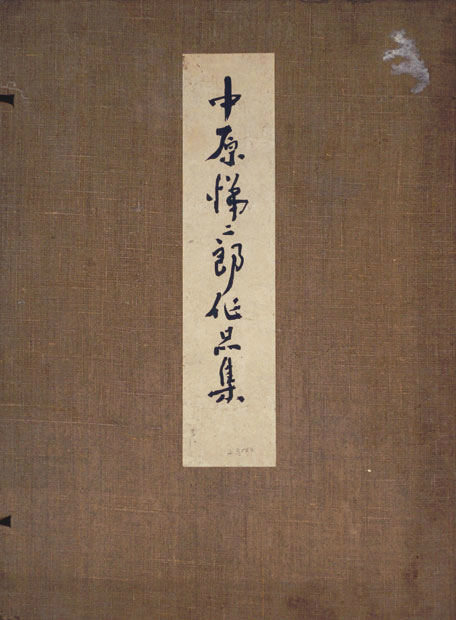 中原悌二郎作品集